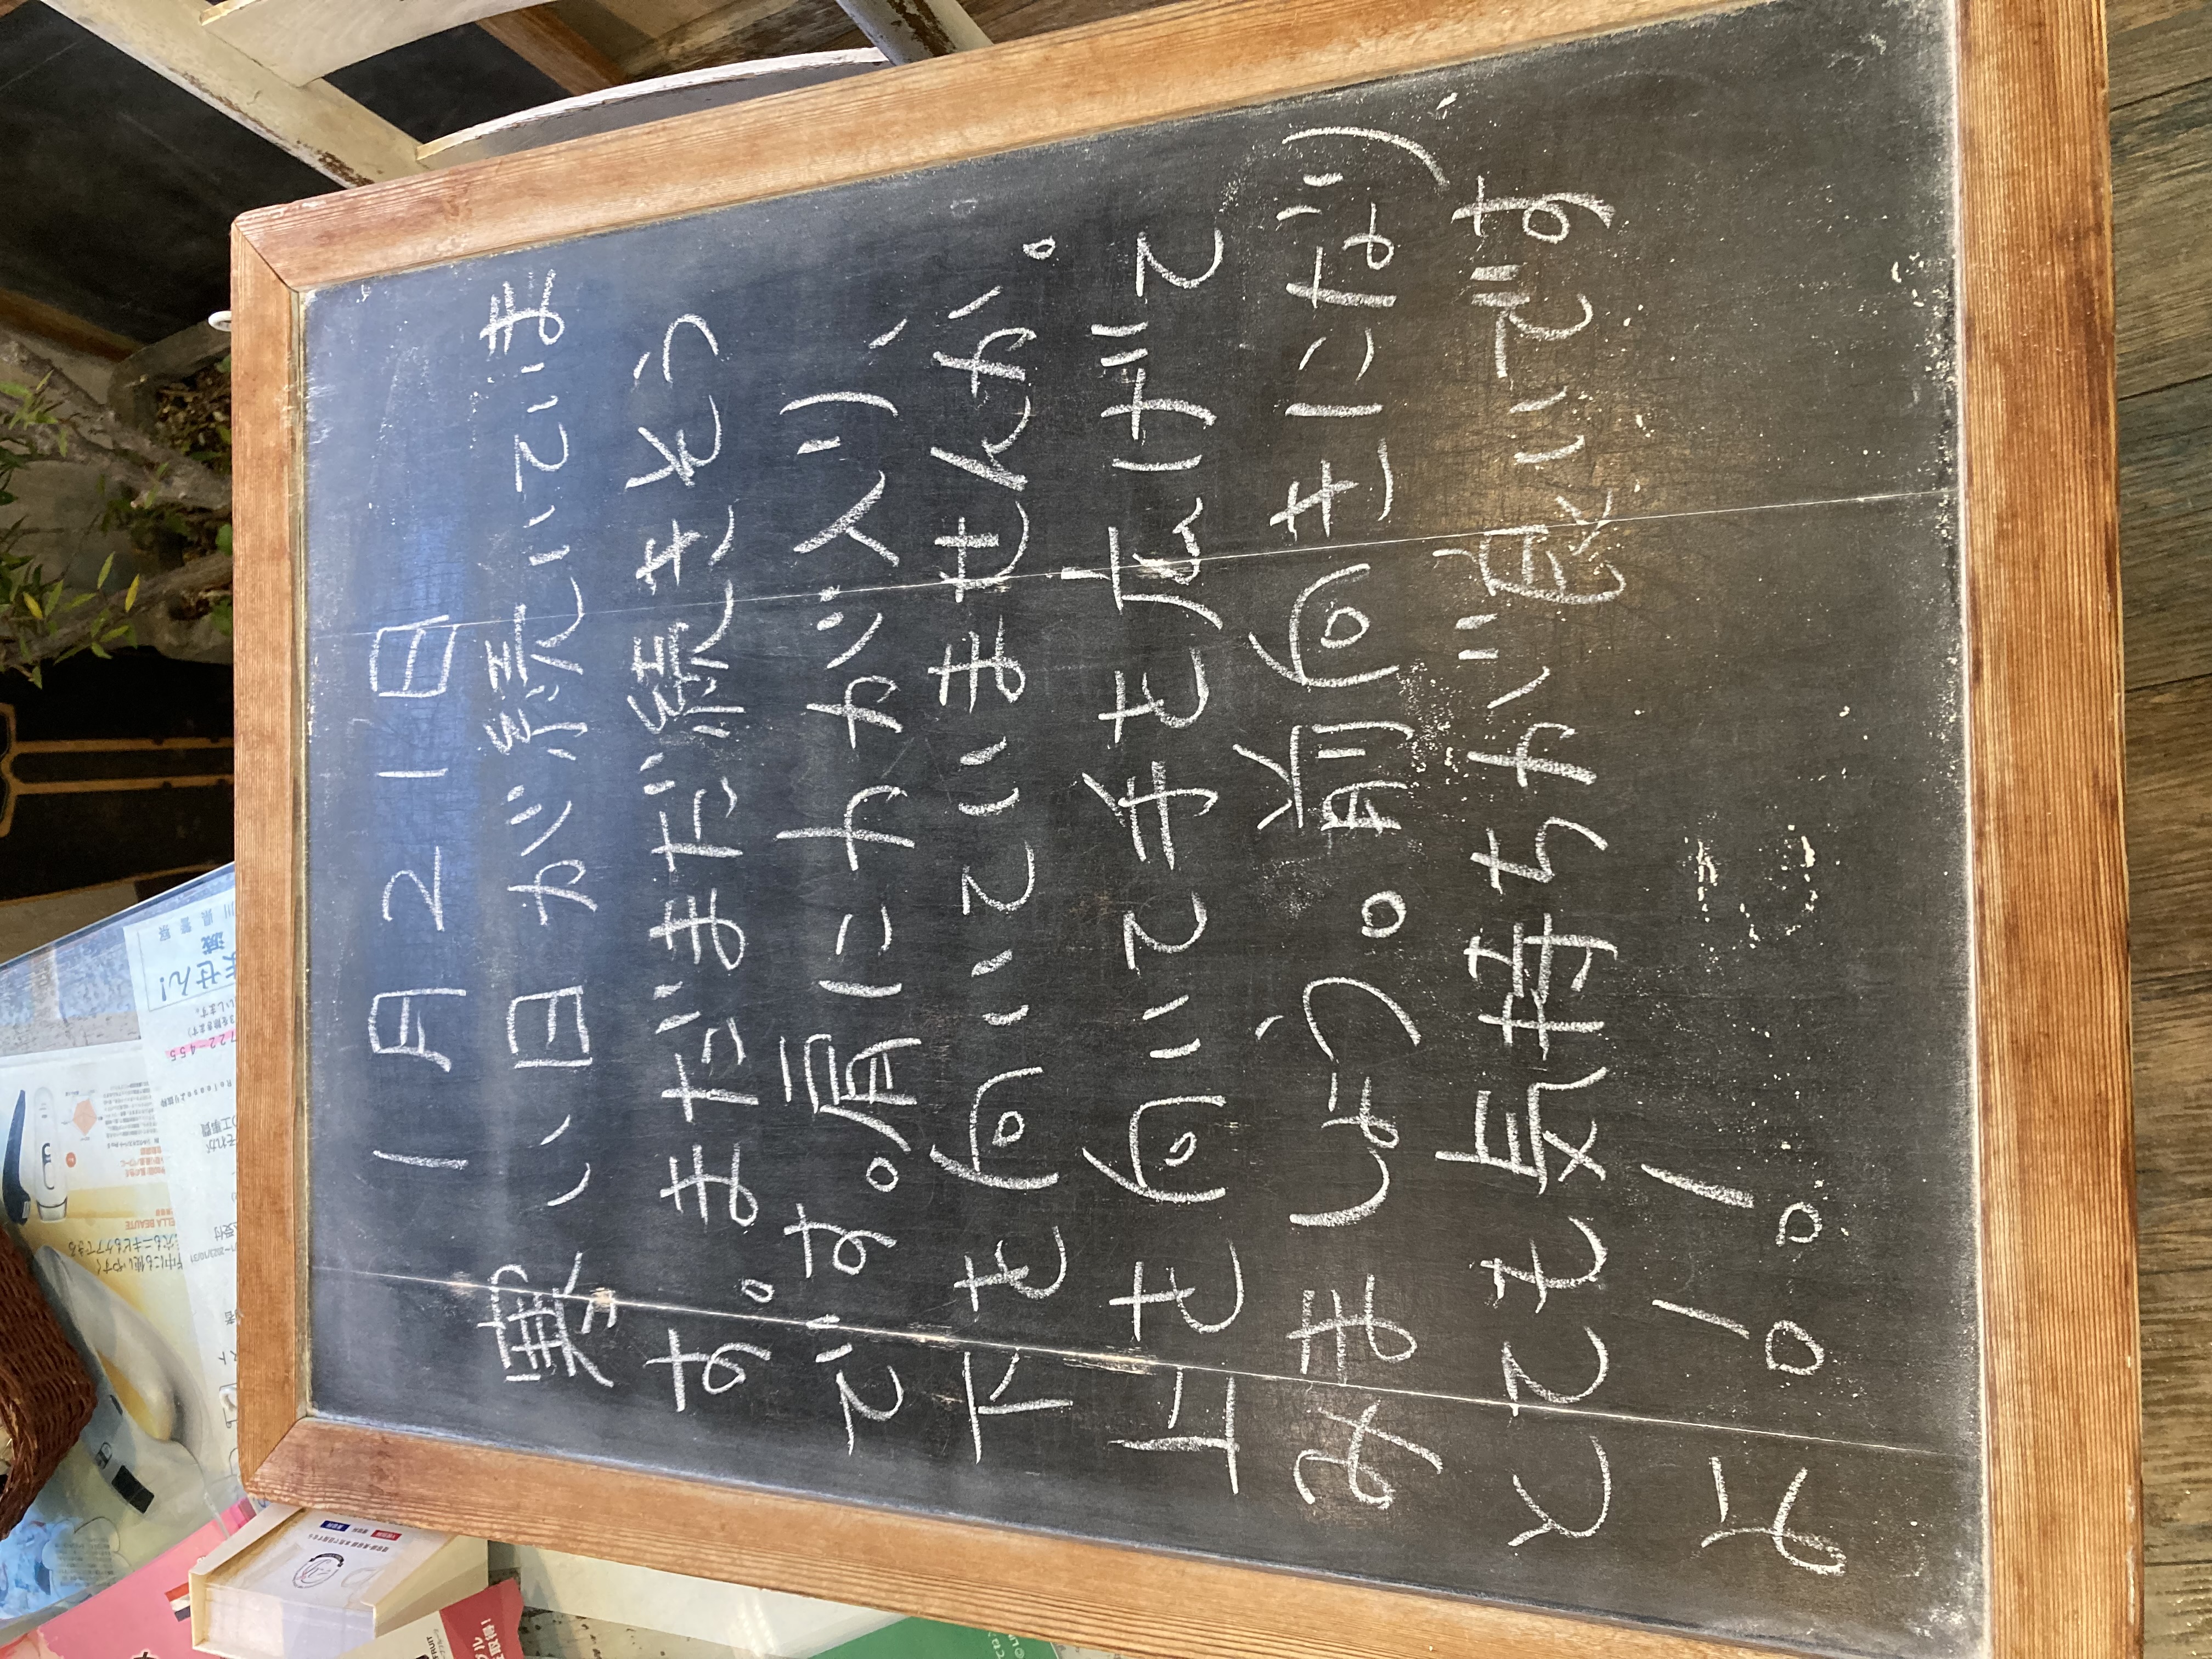 1月21日
寒い日が続いていま
す。まだまだ続きそう
です。肩に力が入り、
下を向いていませんか。
上を向いて手を広げて
みましょう。前向きになり、
とても気持ちが良いです
よ!!
川県警察
ません!
ELLA BEAUTE